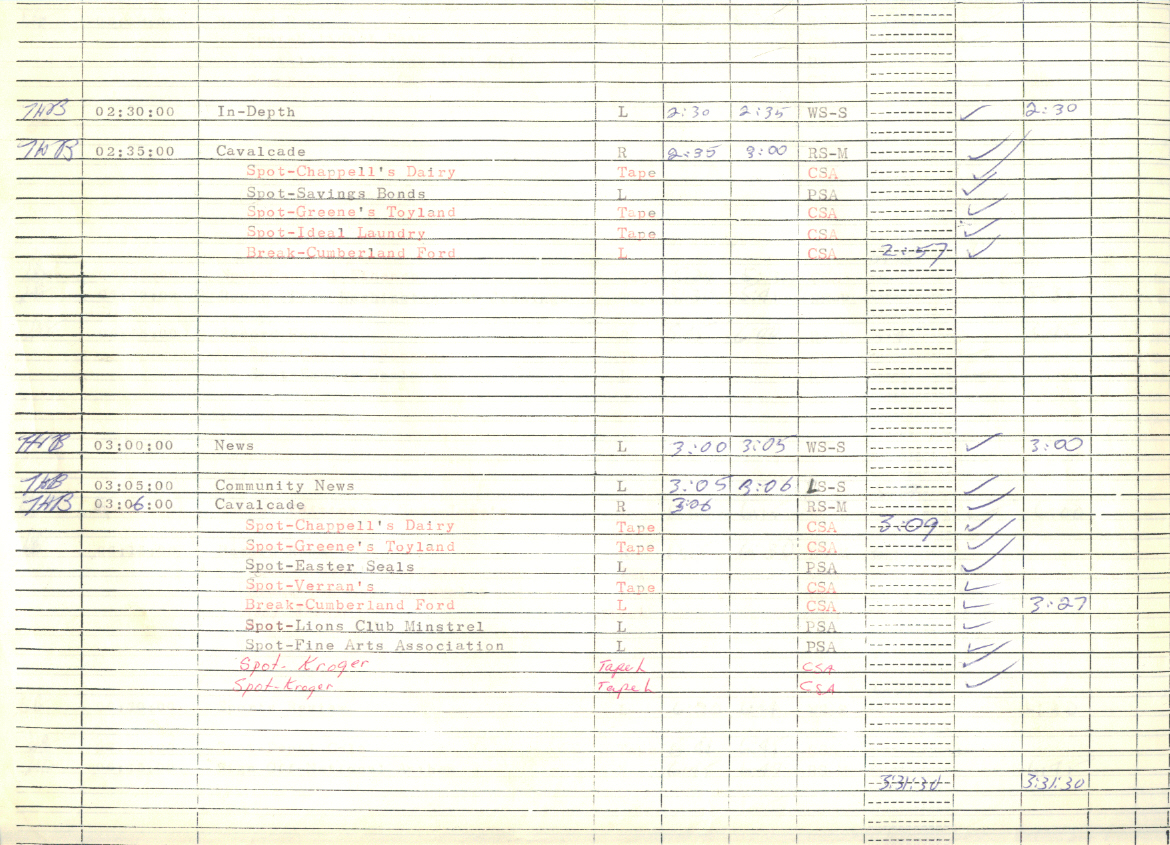 THB 02:30:00 In-Depth L 2:30 2:35 WS-S ✓ 2:30
THB 02:35:00 Cavalcade R 2:35 3:00 RS-M ✓
Spot-Chappell's Dairy Tape CSA ✓
Spot-Savings Bonds L PSA ✓
Spot-Greene's Toyland Tape CSA ✓
Spot-Ideal Laundry Tape CSA ✓
Break-Cumberland Ford L CSA 2:57 ✓
THB 03:00:00 News L 3:00 3:05 WS-S ✓ 3:00
THB 03:05:00 Community News L 3:05 3:06 LS-S ✓
THB 03:06:00 Cavalcade R 3:06 RS-M ✓
Spot-Chappell's Dairy Tape CSA 3:09 ✓
Spot-Greene's Toyland Tape CSA ✓
Spot-Easter Seals L PSA ✓
Spot-Verran's Tape CSA ✓
Break-Cumberland Ford L CSA ✓ 3:27
Spot-Lions Club Minstrel L PSA ✓
Spot-Fine Arts Association L PSA ✓
Spot-Kroger Tape L CSA ✓
Spot-Kroger Tape L CSA ✓
3:31:30 3:31:30